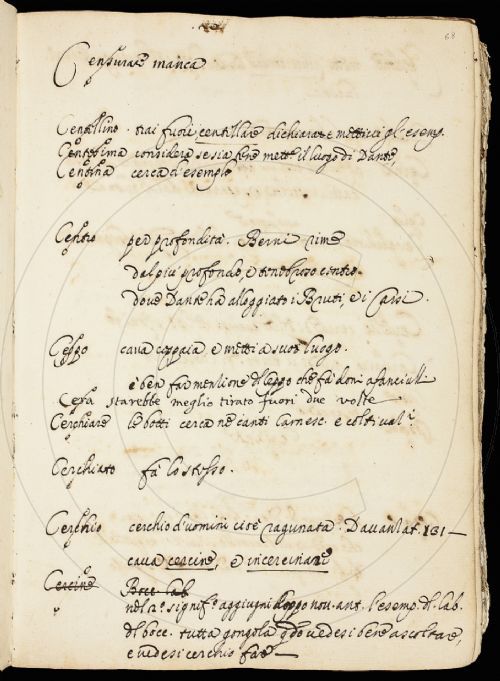 68
Censurare manca
Centellino trai fuori centillare dichiarare e mettivi gl'esemp.
Centesima considera se sia bene mett.e il luogo di Dante,
Centina cerca d'esemplo
Centro per profondità. Berni rime
dal più profondo, e tenebroso centro
dove Dante ha alloggiato i Bruti, e i Cassi.
Ceppo cava ceppaia e metti a suo luogo.
è ben far menzione di ceppo che fà doni a fanciulli
Cera starebbe meglio tirato fuori due volte
Cerchiare le botti cerca ne canti Carnesc. e
Cerchiato fà lo stesso.
Cerchio cerchio d'uomini cioè ragunata. Davanlat. 131 —
cava cercine, e incercinare
Cercine Bocc. lab.
nel 2.o signif.o aggiugni doppo nov. ant. l'esemp. del lab.
del bocc. tutta gongola q.do vedesi bene ascoltare,
e vedesi cerchio fare —